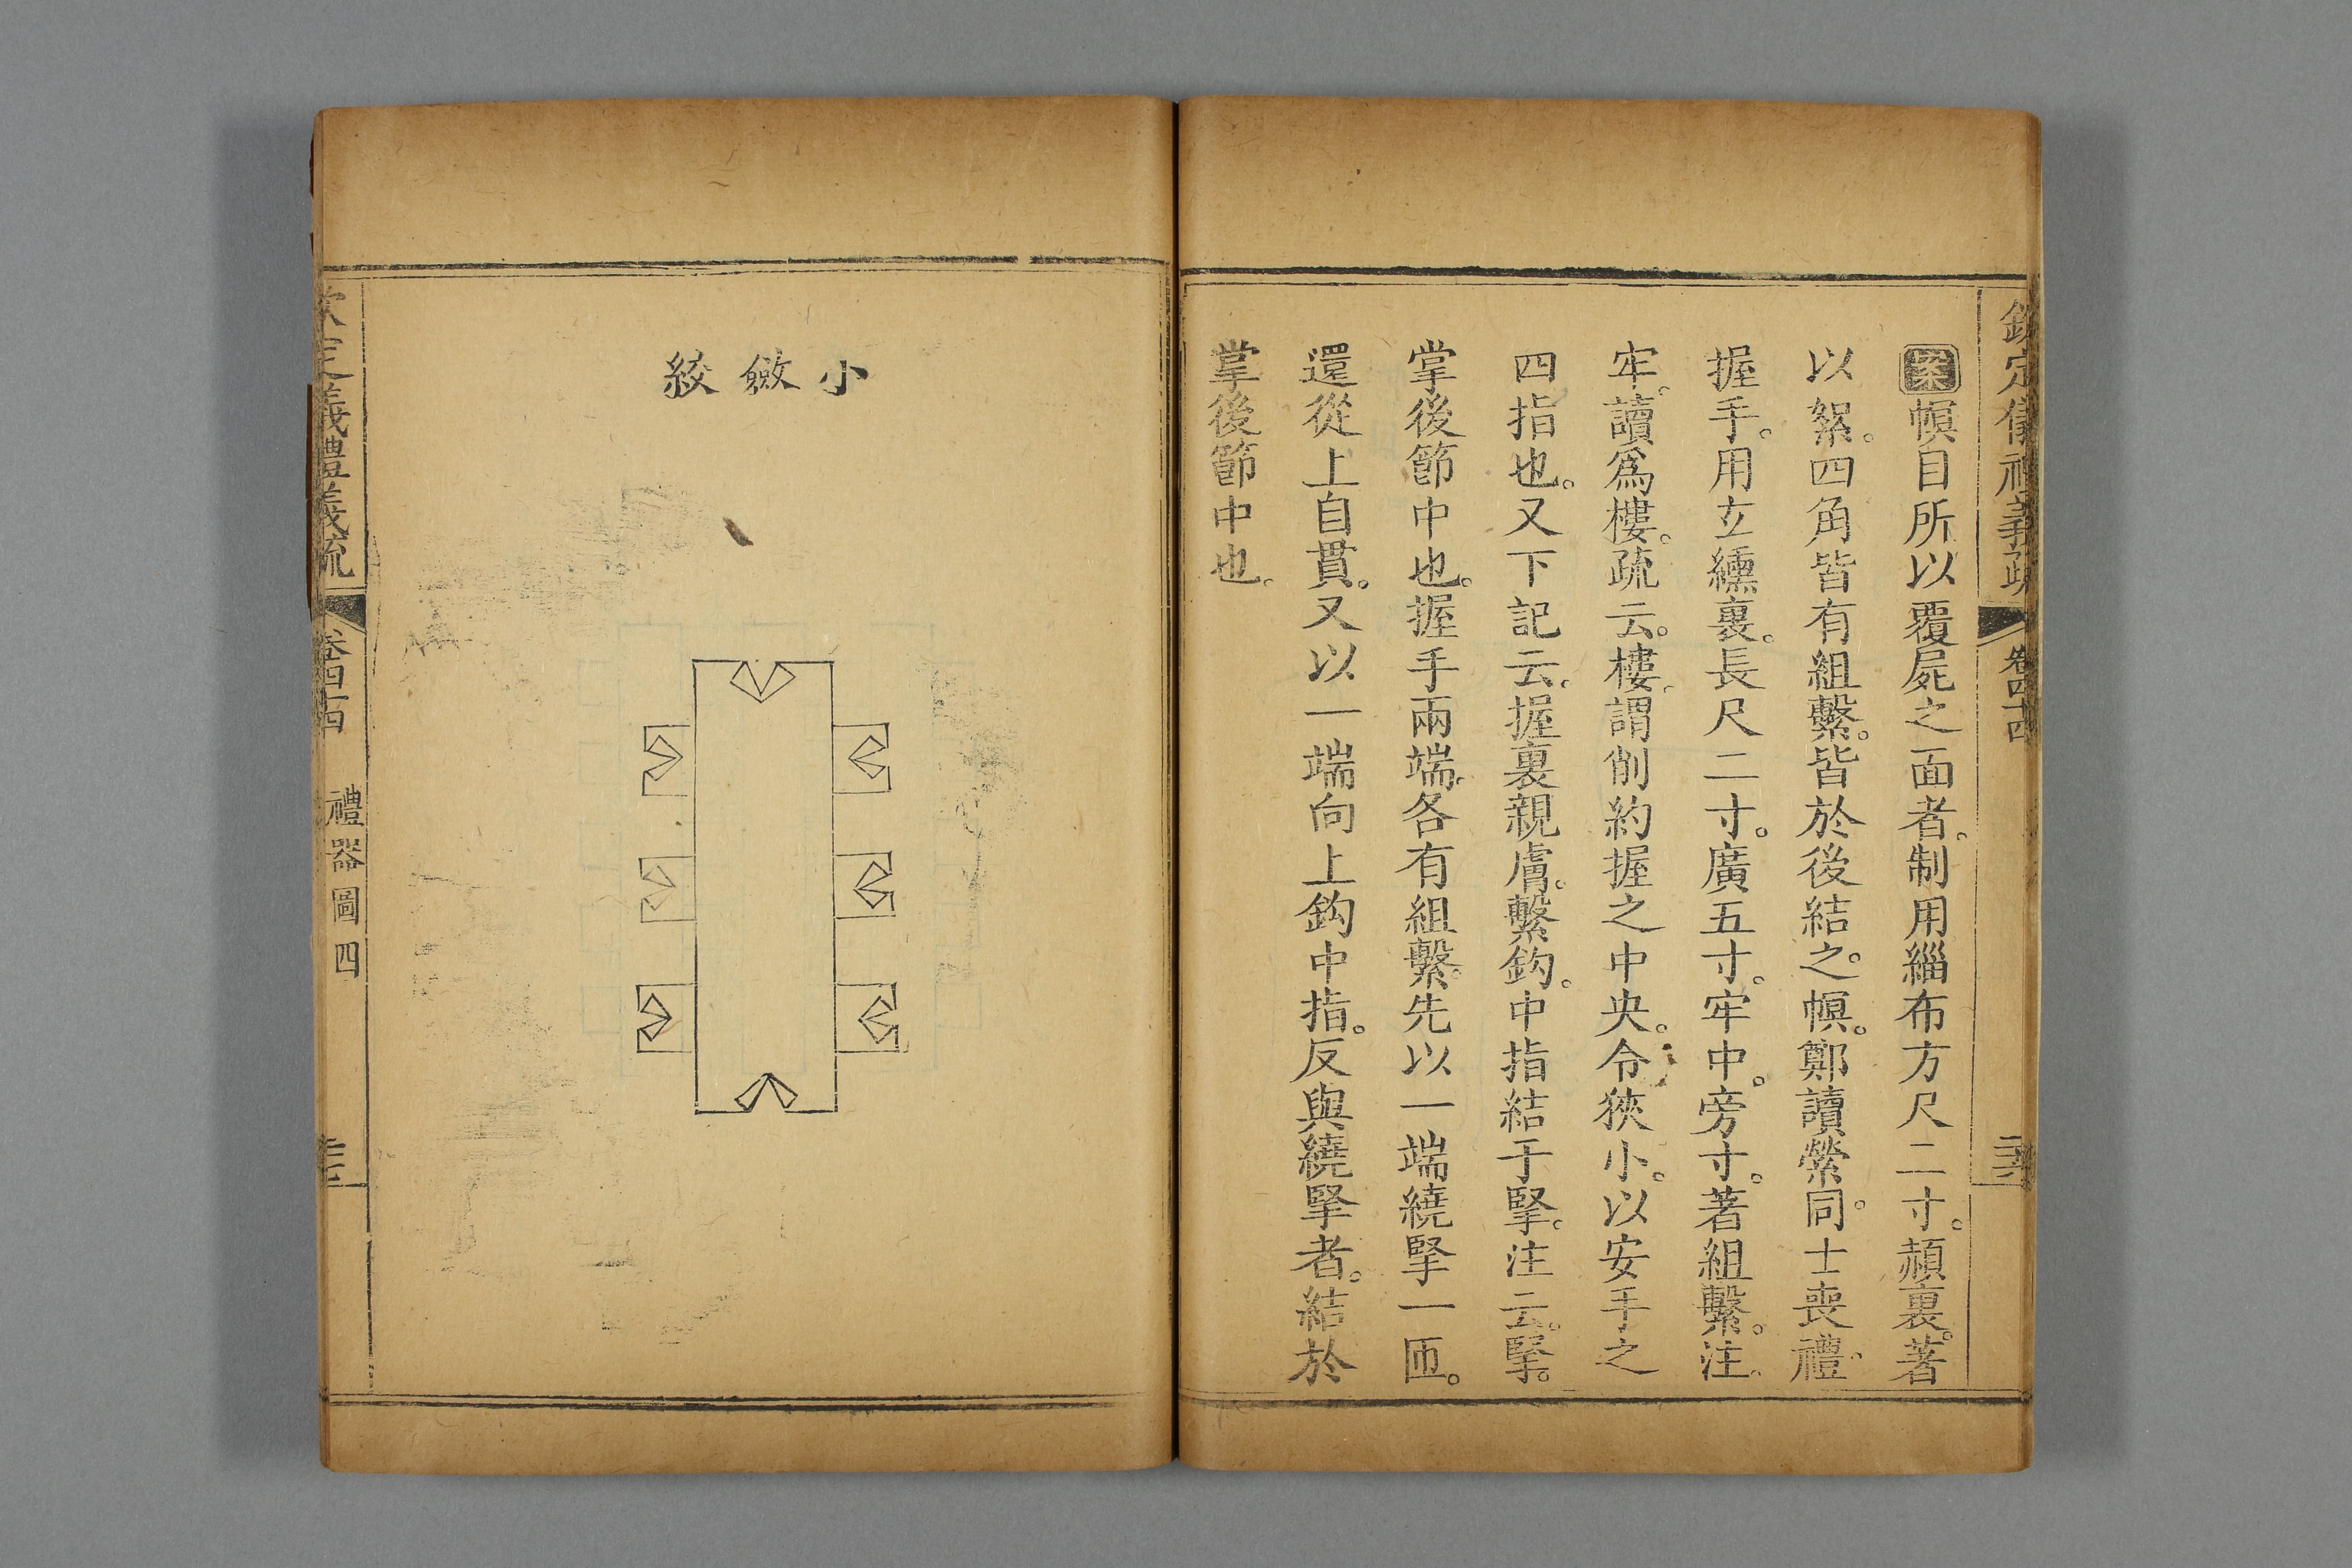 欽定儀禮義疏 卷四十四
案幎目所以覆屍之面者。制用緇布方尺二寸。赬裏。著
以絮。四角皆有組繫。皆於後結之。幎。鄭讀縈。同士喪禮。
握手。用玄纁裏。長尺二寸。廣五寸。牢中。旁寸。著組繫。注。
牢。讀爲樓。疏云。樓。謂削約握之中央。令狹小。以安手之
四指也。又下記云。握裏親膚。繫鈎。中指結于掔。注云。掔。
掌後節中也。握手兩端。各有組繫。先以一端繞掔一匝。
還從上自貫。又以一端向上鈎中指。反與繞掔者。結於
掌後節中也。
小斂絞
定義禮義疏 禮器圖四